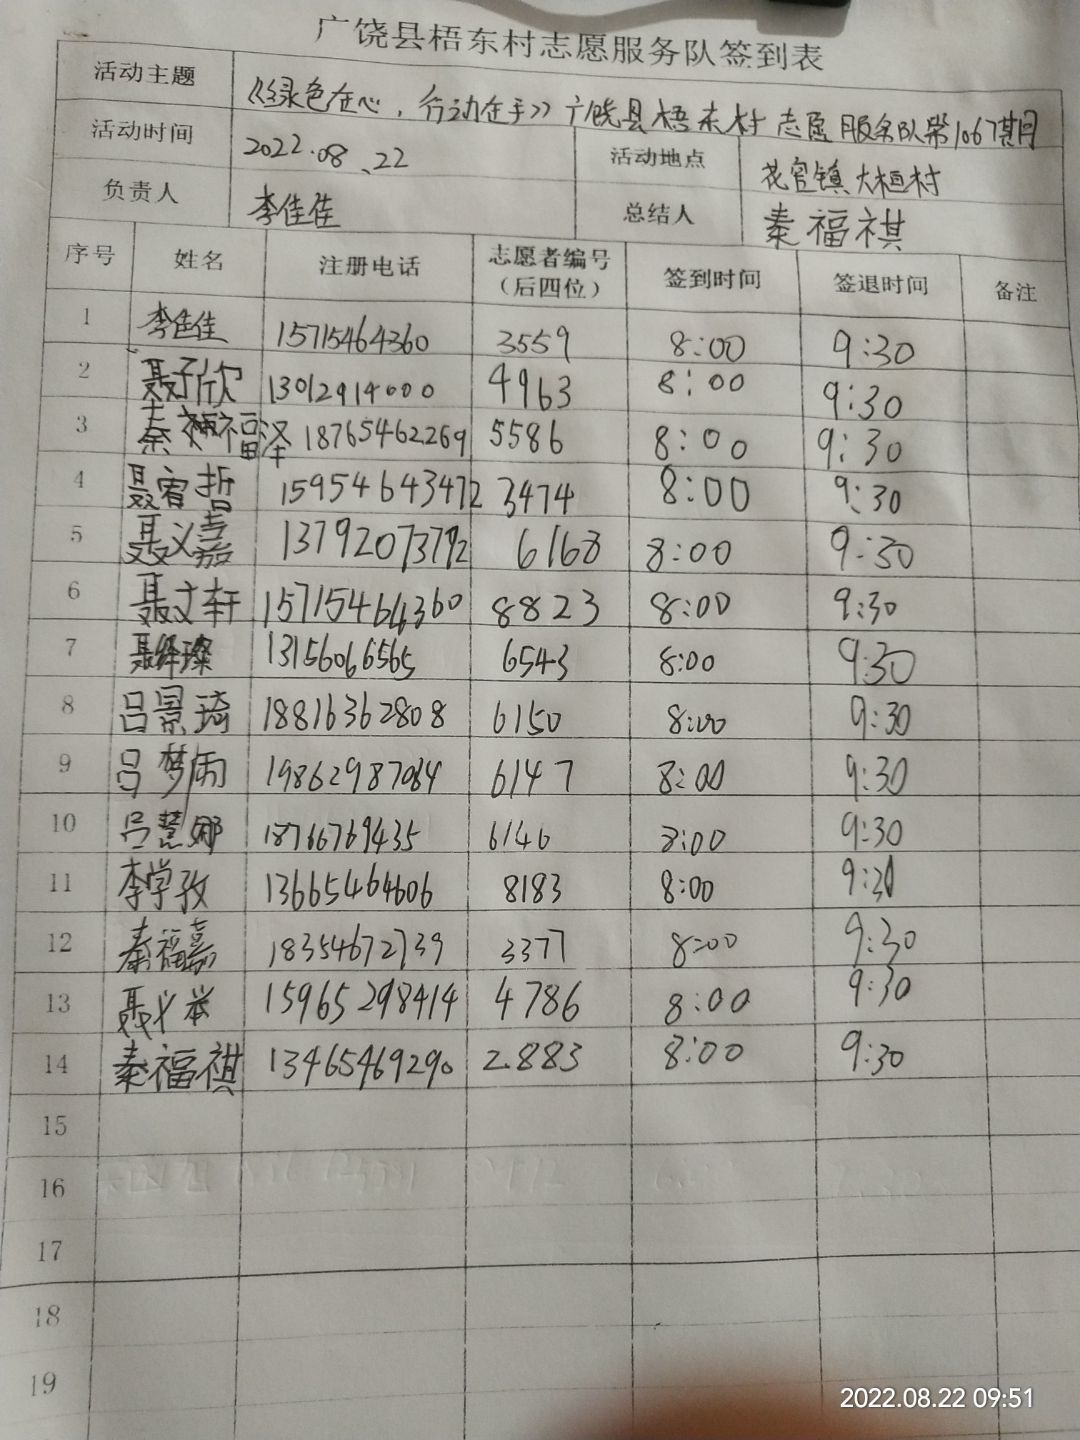 广饶县梧东村志愿服务队签到表
活动主题 《绿色在心，行动在手》广饶县梧东村志愿服务队第1067期
活动时间 2022.08、22 活动地点 花官镇大桓村
负责人 李佳佳 总结人 秦福祺
序号 姓名 注册电话 志愿者编号（后四位） 签到时间 签退时间 备注
1 李佳佳 15715464360 3559 8:00 9:30
2 聂子欣 13012914000 4963 8:00 9:30
3 秦福泽 18765462269 5586 8:00 9:30
4 聂宥哲 15954643472 3474 8:00 9:30
5 聂义嘉 13792073792 6168 8:00 9:30
6 聂文轩 15715464360 8823 8:00 9:30
7 聂 璨 13156066565 6543 8:00 9:30
8 吕景琦 18816362808 6150 8:00 9:30
9 吕梦雨 19862987084 6147 8:00 9:30
10 吕慧娜 18766769435 6146 8:00 9:30
11 李学孜 13665464606 8183 8:00 9:30
12 秦福嘉 18354672739 3377 8:00 9:30
13 聂义举 15965298414 4786 8:00 9:30
14 秦福祺 13465469290 2883 8:00 9:30
15
16
17
18
19
2022.08.22 09:51